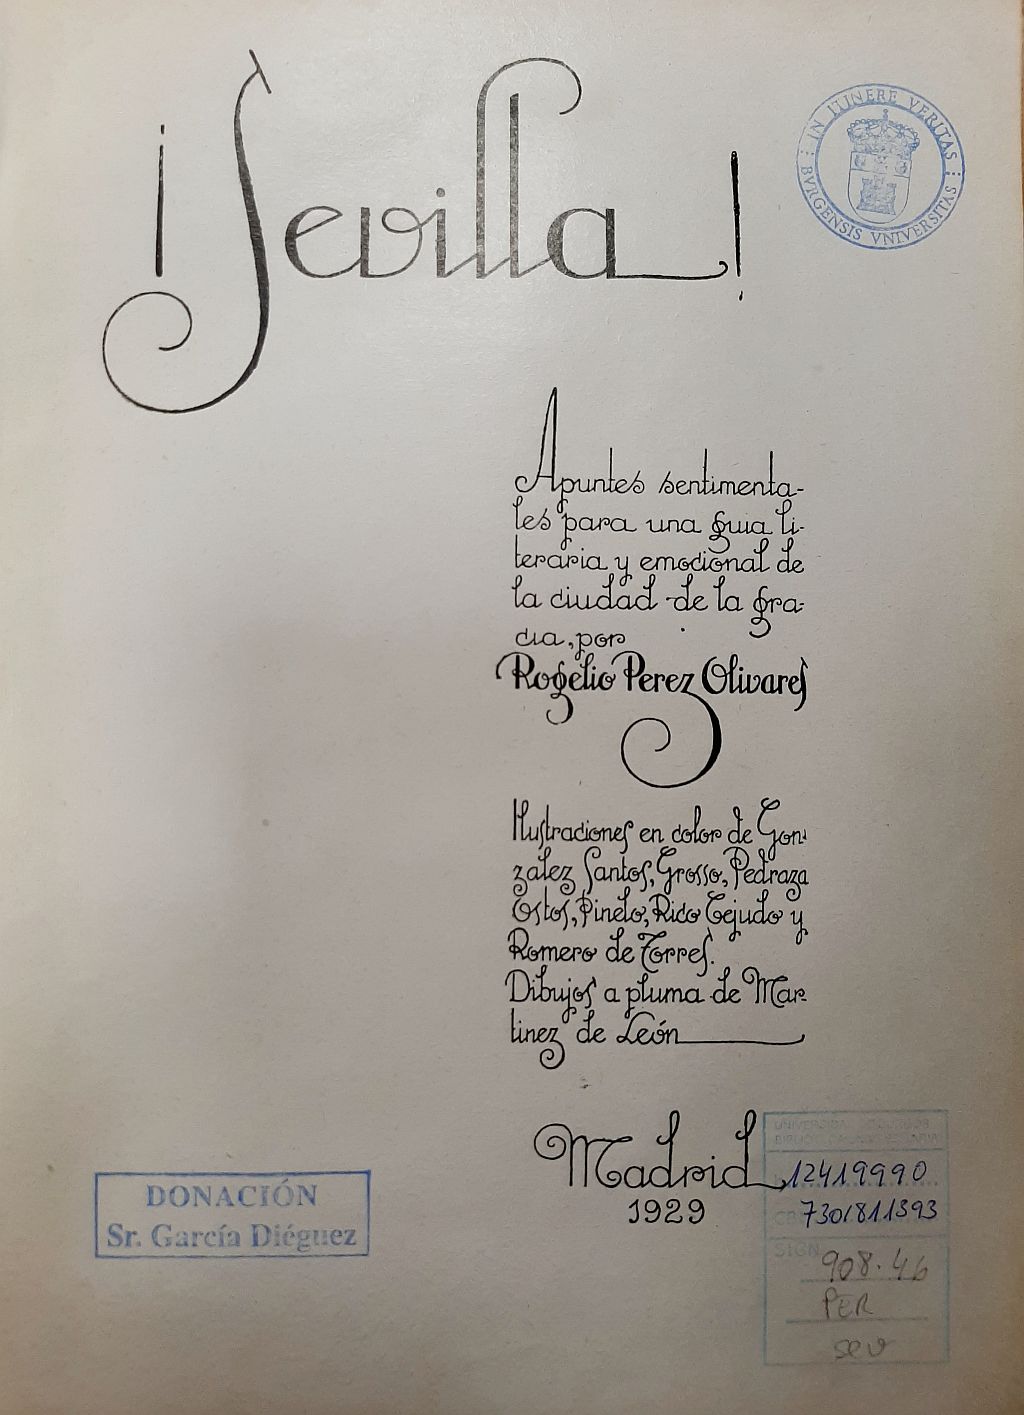 ¡Sevilla!
IN ITINERE VERITAS
BVRGENSIS VNIVERSITAS
Apuntes sentimenta-
les para una guia li-
teraria y emocional de
la ciudad de la gra-
cia, por
Rogelio Perez Olivares
Ilustraciones en color de Gon-
zalez Santos, Grosso, Pedraza
Ostos, Pinelo, Rico Cejudo y
Romero de Torres.
Dibujos a pluma de Mar-
tinez de León
Madrid
1929
DONACIÓN
Sr. García Diéguez
UNIVERSIDAD DE BURGOS
BIBLIOTECA UNIVERSITARIA
12419990
CB 7301811393
SIGN
908.46
PER
sev